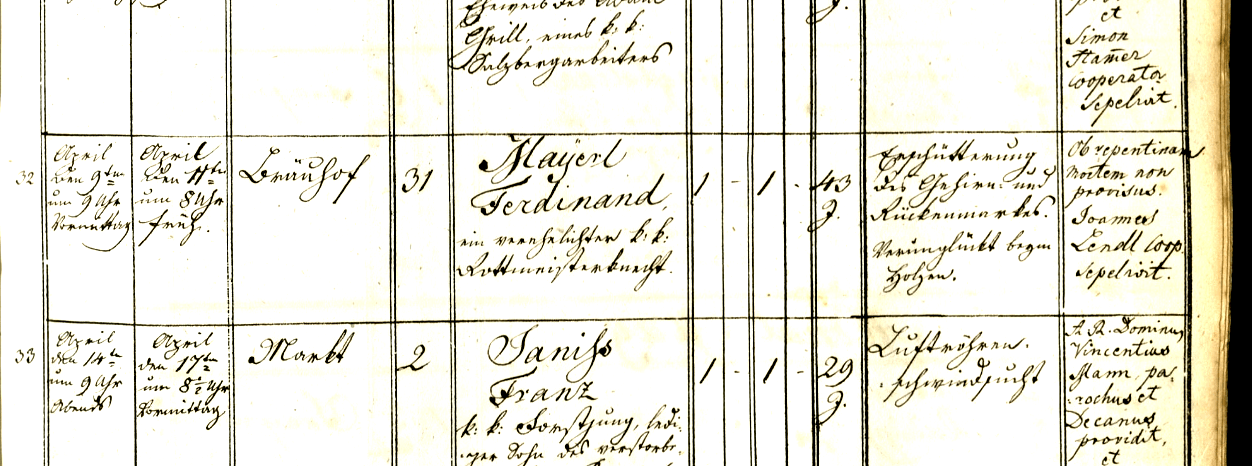 Eheweib des Adam
Grill, eines k: k:
Salzbergarbeiters
J.
et
Simon
Stam̅er
Cooperator
Sepelivit.
32
April
den 9ten
um 9 Uhr
Vormittag
April
den 11ten
um 8 Uhr
früh.
Bräuhof
31
Mayerl
Ferdinand,
ein verehelichter k: k:
Rottmeisterknecht.
1 - 1 - 43
J.
Erschütterung
des Gehirns und
Rückenmarkes.
Verunglückt beym
Holzen.
Ob repentinam
mortem non
provisus.
Joannes
Lendl Coop.
Sepelivit.
33
April
den 14ten
um 9 Uhr
Abends
April
den 17ten
um 8½ Uhr
Vormittag
Markt
2
Janiss
Franz
k: k: Forstjung, ledi-
ger Sohn des verstorbe-
1 - 1 - 29
J.
Luftröhren-
schwindsucht
A. R. Dominus
Vincentius
Mann, pa-
rochus et
Decanus
providit,
et